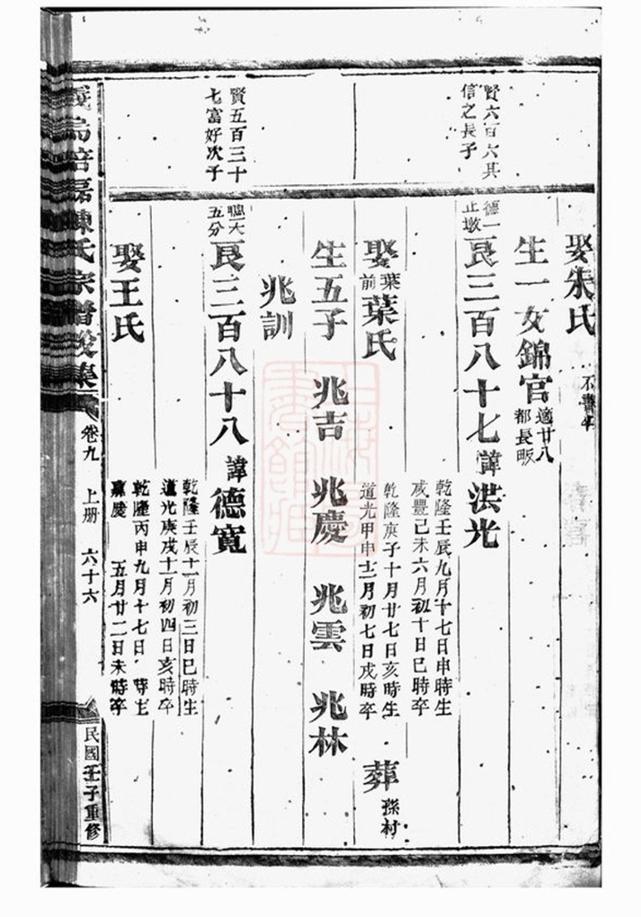 賢六百六其
信之長子
賢五百三十
七富好次子
娶朱氏
生一女錦官 適廿八
都長畈
德一
止墩
良三百八十七 諱洪光 乾隆壬辰九月十七日申時生
咸豐己未六月初十日巳時卒
娶 葉前 葉氏 乾隆庚子十月廿七日亥時生
道光甲申十二月初七日戌時卒 葬 孫村
生五子 兆吉 兆慶 兆雲 兆林
兆訓
五分
良三百八十八 諱德寬 乾隆壬辰十一月初三日巳時生
道光庚戌十一月初四日亥時卒
娶王氏 乾隆丙申九月十七日 時生
嘉慶 五月廿二日未時卒
義烏 磊陳氏宗譜 集 卷九 上册 六十六 民國壬子重修